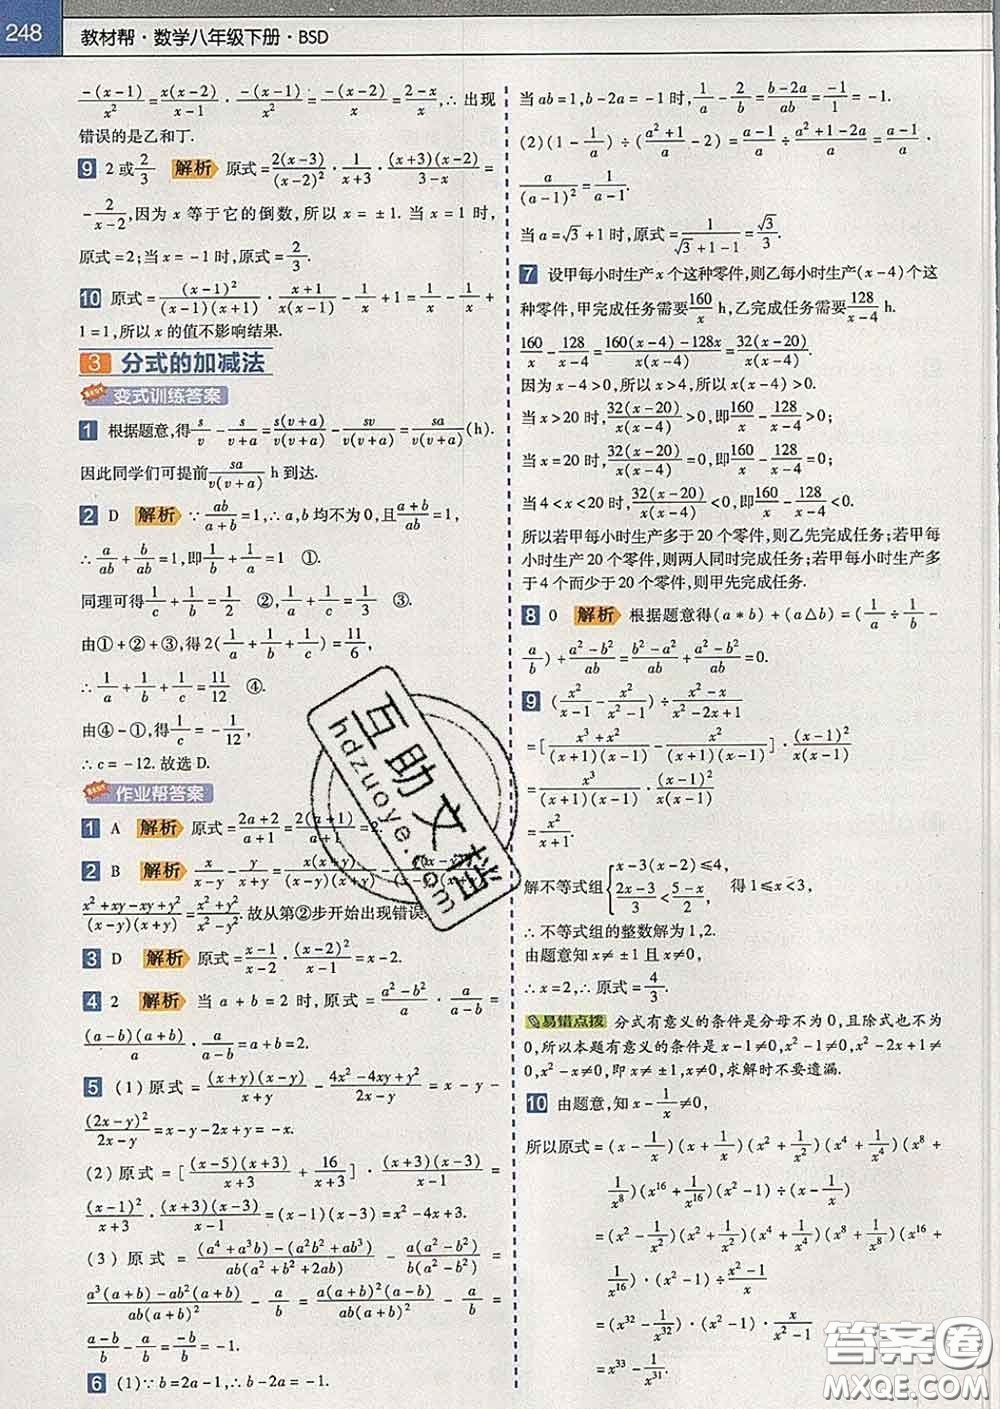 248 教材帮·数学八年级下册·BSD
-(x-1)/x² = x(x-2)/(x-1) · -(x-1)/x² = -(x-2)/x = (2-x)/x,∴出现
错误的是乙和丁.
9 2或2/3 解析 原式=2(x-3)/(x-2)² · 1/(x+3) · (x+3)(x-2)/(3-x) =
-2/(x-2),因为x等于它的倒数,所以x=±1.当x=1时,
原式=2;当x=-1时,原式=2/3.
10 原式=(x-1)²/((x-1)(x+1)) · (x+1)/(x(x-1)) - 1/x + 1 = 1/x - 1/x +
1=1,所以x的值不影响结果.
3 分式的加减法
变式训练答案
1 根据题意,得s/v - s/(v+a) = s(v+a)/(v(v+a)) - sv/(v(v+a)) = sa/(v(v+a))(h).
因此同学们可提前sa/(v(v+a)) h到达.
2 D 解析 ∵ab/(a+b)=1,∴a,b均不为0,且(a+b)/ab=1,
∴a/ab + b/ab = 1,即1/a + 1/b = 1 ①.
同理可得1/c + 1/b = 1/2 ②,1/a + 1/c = 1/3 ③.
由①+②+③,得2(1/a + 1/b + 1/c) = 11/6,
∴1/a + 1/b + 1/c = 11/12 ④.
由④-①,得1/c = -1/12,
∴c=-12.故选D.
作业帮答案
1 A 解析 原式=(2a+2)/(a+1) = 2(a+1)/(a+1) = 2.
2 B 解析 x/(x-y) - y/(x+y) = x(x+y)/((x-y)(x+y))
(x²+xy-xy+y²)/((x-y)(x+y)) = (x²+y²)/(x²-y²).故从第②步开始出现错误.
3 D 解析 原式=(x-1)/(x-2) · (x-2)²/(x-1) = x-2.
4 2 解析 当a+b=2时,原式=(a²-b²)/a · a/(a-b) =
(a-b)(a+b)/a · a/(a-b) = a+b = 2.
5 (1)原式=(x+y)(x-y)/(x+y) - (4x²-4xy+y²)/(2x-y) = x-y-
(2x-y)²/(2x-y) = x-y-2x+y = -x.
(2)原式=[(x-5)(x+3)/(x+3) + 16/(x+3)] · (x+3)(x-3)/(x-1) =
(x-1)²/(x+3) · (x+3)(x-3)/(x-1) = (x-1)(x-3) = x²-4x+3.
(3)原式=((a⁴+a³b)-(a²b²+ab³))/(ab(a²+b²+2ab)) - a(a²-b²)/(b(a²-b²)) =
(a³(a+b)-ab²(a+b))/(ab(a+b)²) - a/b = a(a+b)²(a-b)/(ab(a+b)²) - a/b =
(a-b)/b - a/b = -b/b = -1.
6 (1)∵b=2a-1,∴b-2a=-1.
当ab=1,b-2a=-1时,1/a - 2/b = (b-2a)/ab = -1/1 = -1.
(2)(1-1/a)÷((a²+1)/a - 2) = (a-1)/a ÷ (a²+1-2a)/a = (a-1)/a ·
a/(a-1)² = 1/(a-1).
当a=√3+1时,原式=1/(√3+1-1) = √3/3.
7 设甲每小时生产x个这种零件,则乙每小时生产(x-4)个这
种零件,甲完成任务需要160/x h,乙完成任务需要128/(x-4) h.
160/x - 128/(x-4) = (160(x-4)-128x)/(x(x-4)) = 32(x-20)/(x(x-4)).
因为x-4>0,所以x>4,所以32(x-20)/(x(x-4)).
当x>20时,32(x-20)/(x(x-4))>0,即160/x - 128/(x-4)>0;
当x=20时,32(x-20)/(x(x-4))=0,即160/x - 128/(x-4)=0;
当4<x<20时,32(x-20)/(x(x-4))<0,即160/x - 128/(x-4)<0.
所以若甲每小时生产多于20个零件,则乙先完成任务;若甲每
小时生产20个零件,则两人同时完成任务;若甲每小时生产多
于4个而少于20个零件,则甲先完成任务.
8 0 解析 根据题意得(a*b)+(a△b)=(1/a ÷ 1/b -
a/b)+(a²-b²)/ab = (b²-a²)/ab + (a²-b²)/ab = 0.
9 (x²/(x-1) - x²/(x²-1)) ÷ (x²-x)/(x²-2x+1)
=[(x³+x²)/((x+1)(x-1)) - x²/((x+1)(x-1))] · (x-1)²/(x(x-1))
=x³/((x+1)(x-1)) · (x-1)²/(x(x-1))
=x²/(x+1).
解不等式组{x-3(x-2)≤4, (2x-3)/3<(5-x)/2, 得1≤x<3,
∴不等式组的整数解为1,2.
由题意知x≠±1且x≠0,
∴x=2,∴原式=4/3.
易错点拨 分式有意义的条件是分母不为0,且除式也不为
0,所以本题有意义的条件是x-1≠0,x²-1≠0,x²-2x+1≠
0,x²-x≠0,即x≠±1,x≠0,求解时不要遗漏.
10 由题意,知x-1/x≠0,
所以原式=(x-1/x)(x+1/x)(x²+1/x²)(x⁴+1/x⁴)(x⁸+
1/x⁸)(x¹⁶+1/x¹⁶)(x²-1)÷(x-1/x)
=(x²-1/x²)(x²+1/x²)(x⁴+1/x⁴)(x⁸+1/x⁸)(x¹⁶+
1/x¹⁶)·(x²-1)÷(x²-1)/x
=(x³²-1/x³²)·(x²-1)·x/(x²-1)
=x³³-1/x³¹.
互助文档
hdzuoye.com
答案圈
MXQE.COM